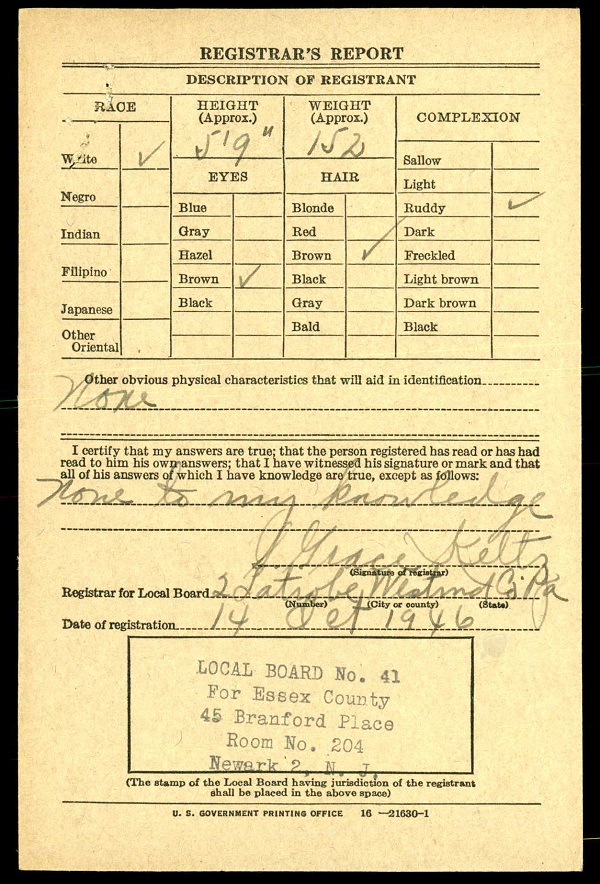 REGISTRAR'S REPORT
DESCRIPTION OF REGISTRANT
RACE
HEIGHT (Approx.)
WEIGHT (Approx.)
COMPLEXION
5'9"
152
White ✓
EYES
HAIR
Sallow
Light
Negro
Blue
Blonde
Ruddy ✓
Indian
Gray
Red
Dark
Hazel
Brown ✓
Freckled
Filipino
Brown ✓
Black
Light brown
Japanese
Black
Gray
Dark brown
Other Oriental
Bald
Black
Other obvious physical characteristics that will aid in identification
None
I certify that my answers are true; that the person registered has read or has had
read to him his own answers; that I have witnessed his signature or mark and that
all of his answers of which I have knowledge are true, except as follows:
None to my knowledge
J Grace Keltz
(Signature of registrar)
Registrar for Local Board 2 Latrobe Westmd Co Pa
(Number) (City or county) (State)
Date of registration 14 Oct 1946
LOCAL BOARD No. 41
For Essex County
45 Branford Place
Room No. 204
Newark 2, N. J.
(The stamp of the Local Board having jurisdiction of the registrant
shall be placed in the above space)
U. S. GOVERNMENT PRINTING OFFICE 16—21630-1